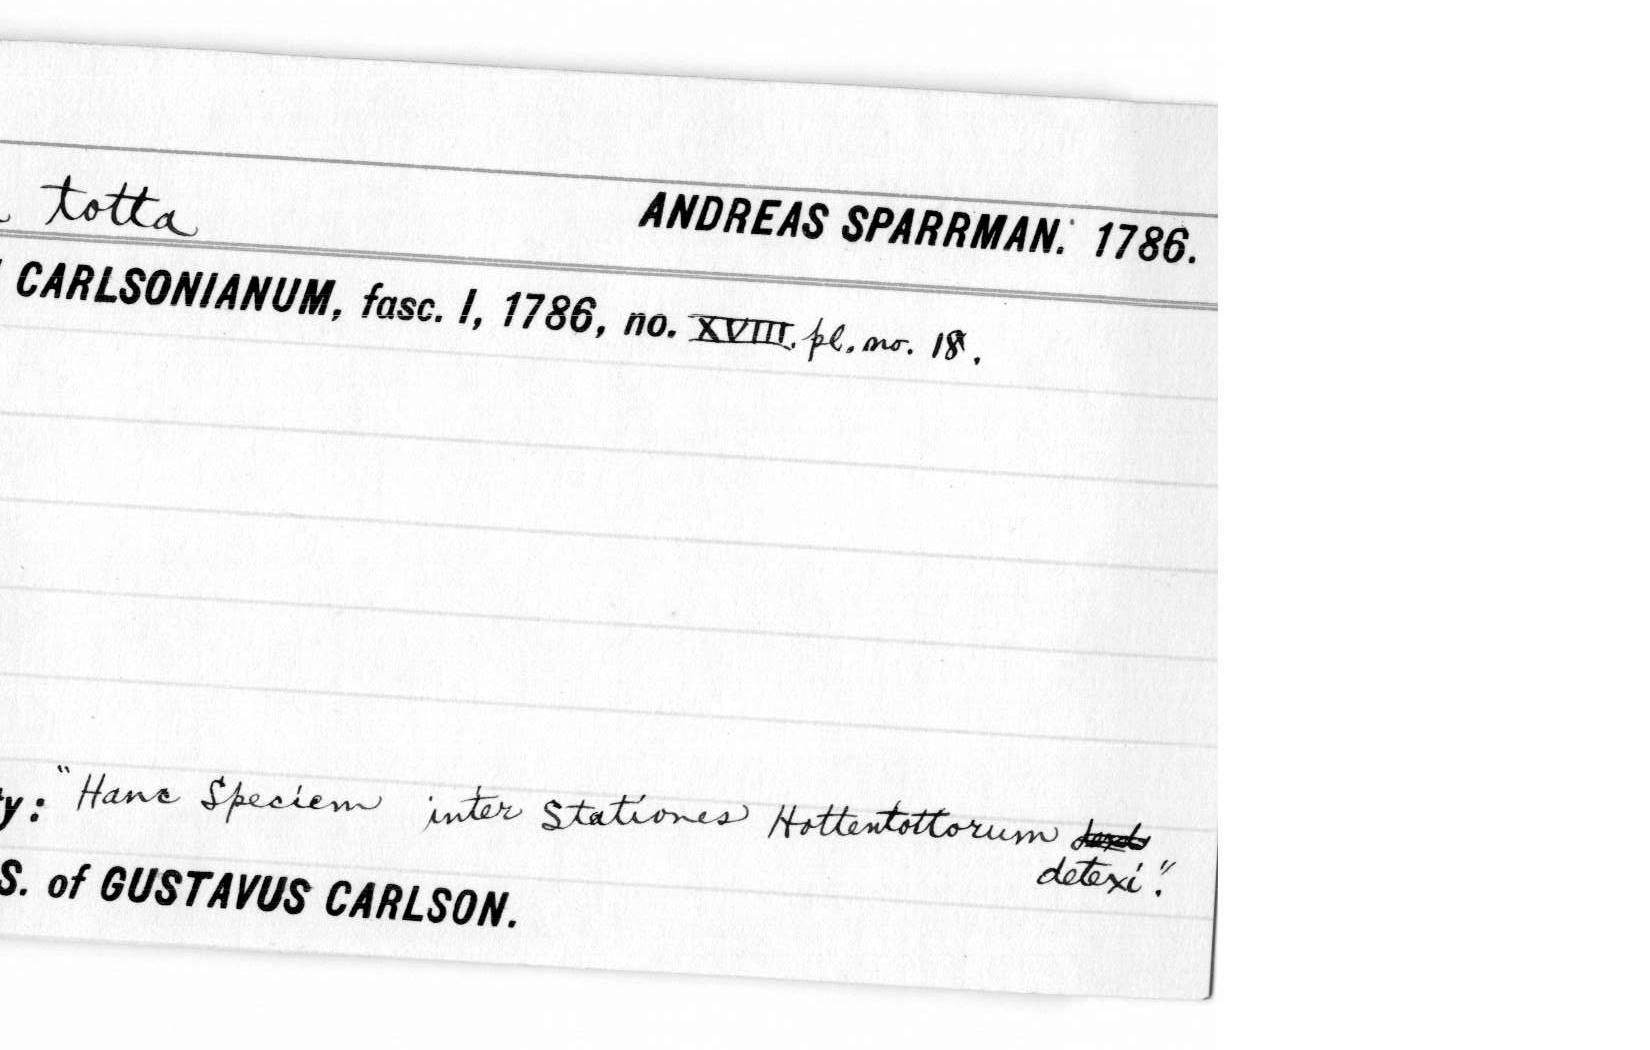 totta ANDREAS SPARRMAN. 1786.
CARLSONIANUM, fasc. I, 1786, no. XVIII. pl. no. 18.
y: "Hanc Speciem inter Stationes Hottentottorum
detexi".
S. of GUSTAVUS CARLSON.